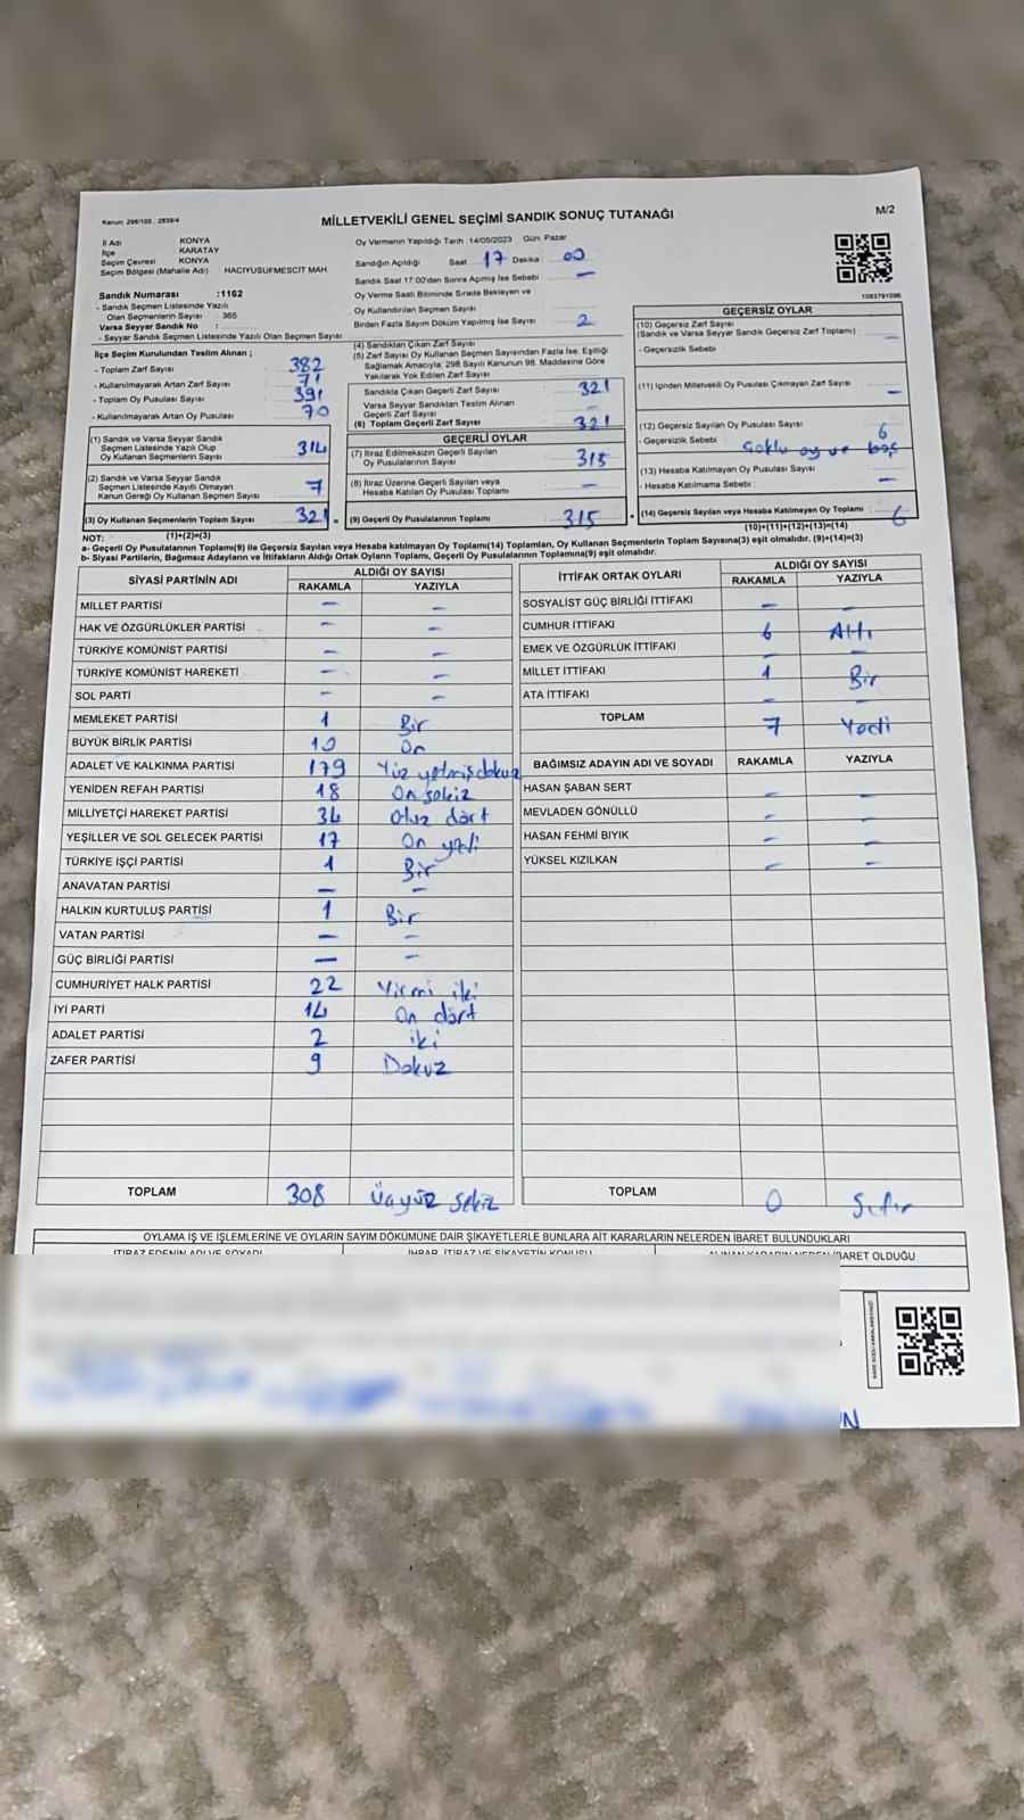 Kanun: 298/105 ; 2839/4
MİLLETVEKİLİ GENEL SEÇİMİ SANDIK SONUÇ TUTANAĞI
M/2
İl Adı KONYA
İlçe KARATAY
Seçim Çevresi KONYA
Seçim Bölgesi (Mahalle Adı) HACIYUSUFMESCİT MAH.
Sandık Numarası :1162
- Sandık Seçmen Listesinde Yazılı
Olan Seçmenlerin Sayısı 365
Varsa Seyyar Sandık No :
- Seyyar Sandık Seçmen Listesinde Yazılı Olan Seçmen Sayısı
İlçe Seçim Kurulundan Teslim Alınan ;
- Toplam Zarf Sayısı 382
- Kullanılmayarak Artan Zarf Sayısı 71
- Toplam Oy Pusulası Sayısı 391
- Kullanılmayarak Artan Oy Pusulası 70
(1) Sandık ve Varsa Seyyar Sandık
Seçmen Listesinde Yazılı Olup
Oy Kullanan Seçmenlerin Sayısı 314
(2) Sandık ve Varsa Seyyar Sandık
Seçmen Listesinde Kayıtlı Olmayan
Kanun Gereği Oy Kullanan Seçmen Sayısı 7
(3) Oy Kullanan Seçmenlerin Toplam Sayısı 321
Oy Vermenin Yapıldığı Tarih : 14/05/2023 Gün: Pazar
Sandığın Açıldığı Saat 17 Dakika 00
Sandık Saat 17:00'dan Sonra Açılmış İse Sebebi —
Oy Verme Saati Bitiminde Sırada Bekleyen ve
Oy Kullandırılan Seçmen Sayısı
Birden Fazla Sayım Döküm Yapılmış İse Sayısı 2
(4) Sandıktan Çıkan Zarf Sayısı
(5) Zarf Sayısı Oy Kullanan Seçmen Sayısından Fazla İse, Eşitliği
Sağlamak Amacıyla; 298 Sayılı Kanunun 98. Maddesine Göre
Yakılarak Yok Edilen Zarf Sayısı
Sandıkta Çıkan Geçerli Zarf Sayısı 321
Varsa Seyyar Sandıktan Teslim Alınan
Geçerli Zarf Sayısı —
(6) Toplam Geçerli Zarf Sayısı 321
GEÇERLİ OYLAR
(7) İtiraz Edilmeksizin Geçerli Sayılan
Oy Pusulalarının Sayısı 315
(8) İtiraz Üzerine Geçerli Sayılan veya
Hesaba Katılan Oy Pusulası Toplamı —
(9) Geçerli Oy Pusulalarının Toplamı 315
1083791096
GEÇERSİZ OYLAR
(10) Geçersiz Zarf Sayısı
(Sandık ve Varsa Seyyar Sandık Geçersiz Zarf Toplamı) —
- Geçersizlik Sebebi
(11) İçinden Milletvekili Oy Pusulası Çıkmayan Zarf Sayısı —
(12) Geçersiz Sayılan Oy Pusulası Sayısı 6
- Geçersizlik Sebebi Çoklu oy ve boş
(13) Hesaba Katılmayan Oy Pusulası Sayısı —
- Hesaba Katılmama Sebebi :
(14) Geçersiz Sayılan veya Hesaba Katılmayan Oy Toplamı 6
NOT: (1)+(2)=(3)
(10)+(11)+(12)+(13)=(14)
a- Geçerli Oy Pusulalarının Toplamı(9) ile Geçersiz Sayılan veya Hesaba katılmayan Oy Toplamı(14) Toplamları, Oy Kullanan Seçmenlerin Toplam Sayısına(3) eşit olmalıdır. (9)+(14)=(3)
b- Siyasi Partilerin, Bağımsız Adayların ve İttifakların Aldığı Ortak Oyların Toplamı, Geçerli Oy Pusulalarının Toplamına(9) eşit olmalıdır.
SİYASİ PARTİNİN ADI ALDIĞI OY SAYISI
RAKAMLA YAZIYLA
MİLLET PARTİSİ — —
HAK VE ÖZGÜRLÜKLER PARTİSİ — —
TÜRKİYE KOMÜNİST PARTİSİ — —
TÜRKİYE KOMÜNİST HAREKETİ — —
SOL PARTİ — —
MEMLEKET PARTİSİ 1 Bir
BÜYÜK BİRLİK PARTİSİ 10 On
ADALET VE KALKINMA PARTİSİ 179 Yüz yetmiş dokuz
YENİDEN REFAH PARTİSİ 18 On sekiz
MİLLİYETÇİ HAREKET PARTİSİ 34 Otuz dört
YEŞİLLER VE SOL GELECEK PARTİSİ 17 On yedi
TÜRKİYE İŞÇİ PARTİSİ 1 Bir
ANAVATAN PARTİSİ — —
HALKIN KURTULUŞ PARTİSİ 1 Bir
VATAN PARTİSİ — —
GÜÇ BİRLİĞİ PARTİSİ — —
CUMHURİYET HALK PARTİSİ 22 Yirmi iki
İYİ PARTİ 14 On dört
ADALET PARTİSİ 2 iki
ZAFER PARTİSİ 9 Dokuz
TOPLAM 308 Üçyüz sekiz
İTTİFAK ORTAK OYLARI ALDIĞI OY SAYISI
RAKAMLA YAZIYLA
SOSYALİST GÜÇ BİRLİĞİ İTTİFAKI — —
CUMHUR İTTİFAKI 6 Altı
EMEK VE ÖZGÜRLÜK İTTİFAKI — —
MİLLET İTTİFAKI 1 Bir
ATA İTTİFAKI — —
TOPLAM 7 Yedi
BAĞIMSIZ ADAYIN ADI VE SOYADI RAKAMLA YAZIYLA
HASAN ŞABAN SERT — —
MEVLADEN GÖNÜLLÜ — —
HASAN FEHMİ BIYIK — —
YÜKSEL KIZILKAN — —
TOPLAM 0 Sıfır
OYLAMA İŞ VE İŞLEMLERİNE VE OYLARIN SAYIM DÖKÜMÜNE DAİR ŞİKAYETLERLE BUNLARA AİT KARARLARIN NELERDEN İBARET BULUNDUKLARI
İTİRAZ EDENİN ADI VE SOYADI İHBAR, İTİRAZ VE ŞİKAYETİN KONUSU ALINAN KARARIN NEDEN İBARET OLDUĞU